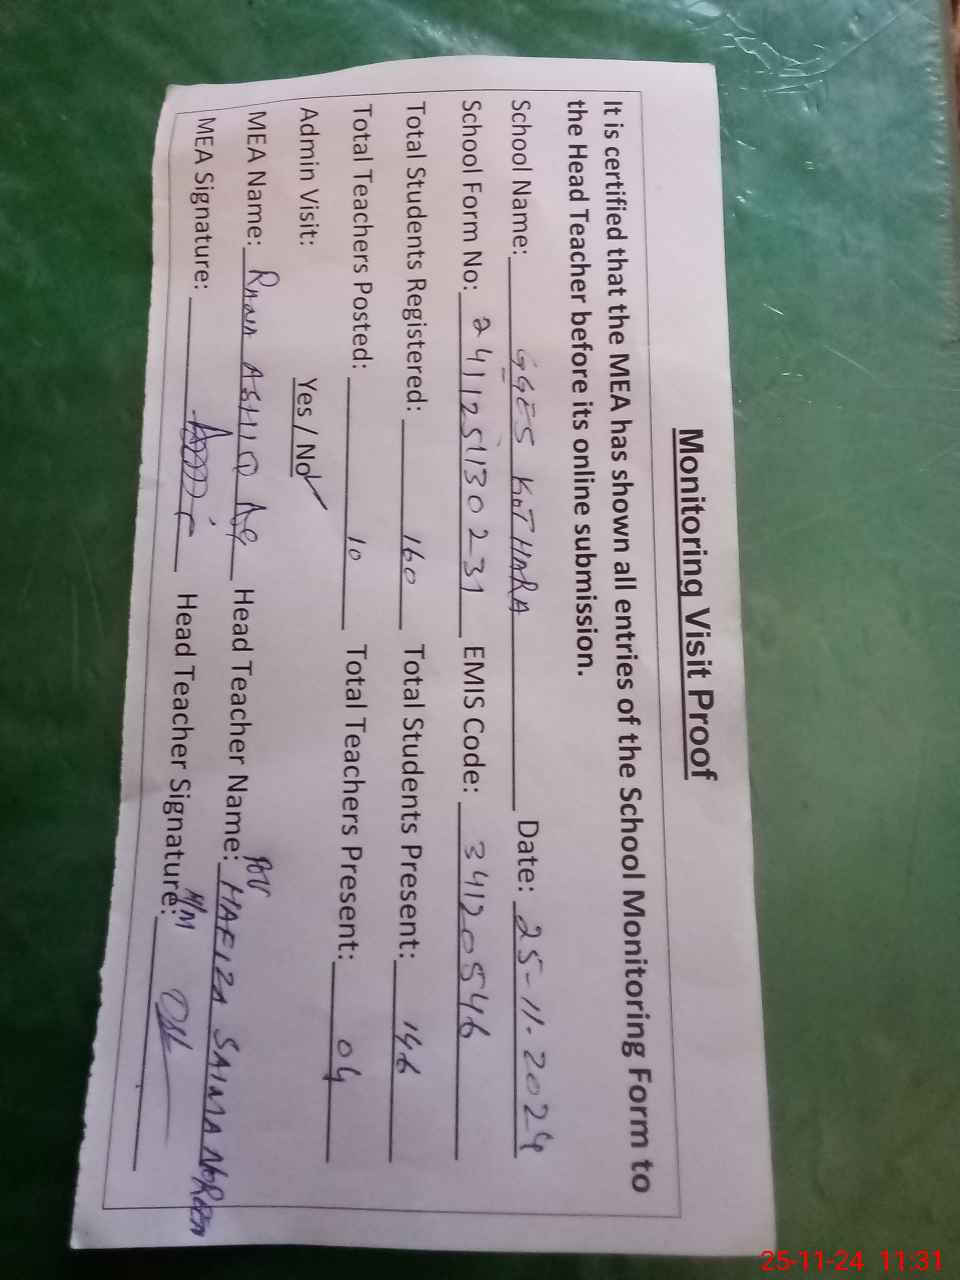 Monitoring Visit Proof
It is certified that the MEA has shown all entries of the School Monitoring Form to
the Head Teacher before its online submission.
School Name: GGES KOT HARA Date: 25-11-2024
School Form No: 241125113023 1 EMIS Code: 34120546
Total Students Registered: 160 Total Students Present: 146
Total Teachers Posted: 10 Total Teachers Present: 04
Admin Visit: Yes / No
MEA Name: ASHIQ Head Teacher Name: HAFIZA SAIMA NOREEN
MEA Signature: Head Teacher Signature:
25-11-24 11:31